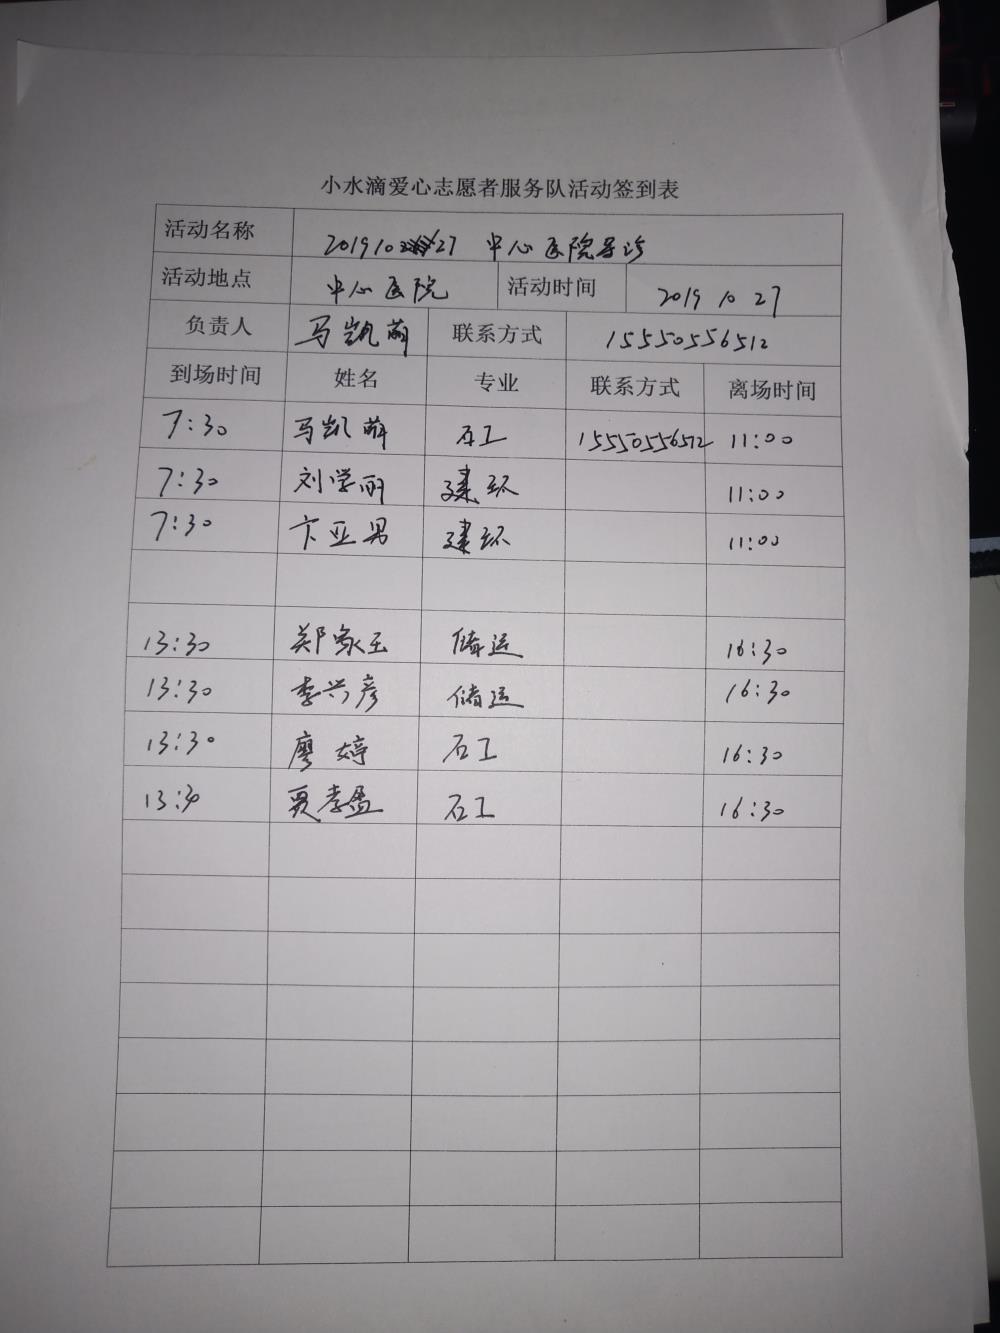 小水滴爱心志愿者服务队活动签到表
活动名称 20191027 中心医院导诊
活动地点 中心医院 活动时间 2019 10 27
负责人 马凯萌 联系方式 15550556512
到场时间 姓名 专业 联系方式 离场时间
7:30 马凯萌 石工 15550556512 11:00
7:30 刘学丽 建环 11:00
7:30 卞亚男 建环 11:00
13:30 郑家玉 储运 16:30
13:30 李兴彦 储运 16:30
13:30 廖婷 石工 16:30
13:30 贾孝盈 石工 16:30